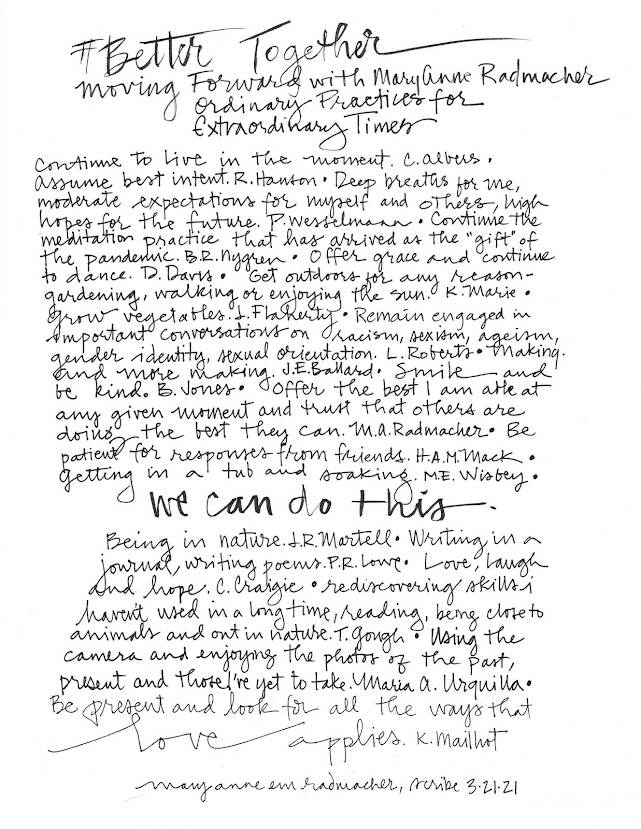 #Better Together
moving Forward with MaryAnne Radmacher
Ordinary Practices for
Extraordinary Times
Continue to live in the moment. C. Albers •
Assume best intent. R. Hanson • Deep breaths for me,
moderate expectations for myself and others, high
hopes for the future. P. Wesselmann • Continue the
meditation practice that has arrived as the "gift" of
the pandemic. B.R. Nygren • Offer grace and continue
to dance. D. Davis • Get outdoors for any reason-
gardening, walking or enjoying the sun. K. Marie •
Grow vegetables. J. Flaherty • Remain engaged in
important conversations on racism, sexism, ageism,
gender identity, sexual orientation. L. Roberts • Making.
And more making. J.E. Ballard • Smile and
be kind. B. Jones • Offer the best I am able at
any given moment and trust that others are
doing the best they can. M.A. Radmacher • Be
patient for responses from friends. H.A.M. Mack •
Getting in a tub and soaking. M.E. Wisbey •
We can do this.
Being in nature. J.R. Martell • Writing in a
journal, writing poems. P.R. Lowe • Love, laugh
and hope. C. Craigie • rediscovering skills i
haven't used in a long time, reading, being close to
animals and out in nature. T. Gough • Using the
camera and enjoying the photos of the past,
present and those I've yet to take. Maria A. Urquilla •
Be present and look for all the ways that
love applies. K. Mailhot
mary anne em radmacher, scribe 3.21.21